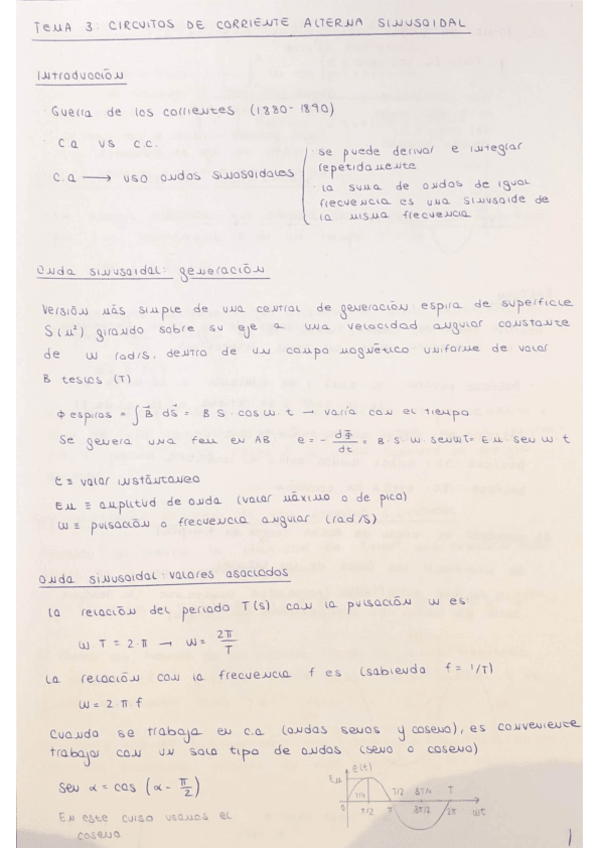 TEMA 3: CIRCUITOS DE CORRIENTE ALTERNA SINUSOIDAL
Introducción
· Guerra de los corrientes (1880-1890)
· C.a vs c.c.
· C.a → uso ondas sinosoidales
· se puede derivar e integrar
repetidamente
· la suma de ondas de igual
frecuencia es una sinusoide de
la misma frecuencia
Onda sinusoidal: generación
Versión más simple de una central de generación espira de superficie
S(m²) girando sobre su eje a una velocidad angular constante
de ω rad/s, dentro de un campo magnético uniforme de valor
B teslas (T)
Φ espiras = ∫ B⃗ dS⃗ = B S · cos ω · t → varía con el tiempo
Se genera una fem en AB e = - dΦ/dt = B · S · ω · senωt = Em · sen ω t
e ≡ valor instántaneo
Em ≡ amplitud de onda (valor máximo o de pico)
ω ≡ pulsación o frecuencia angular (rad/s)
Onda sinusoidal: valores asociados
la relación del periodo T(s) con la pulsación ω es:
ω T = 2·π → ω = 2π/T
La relación con la frecuencia f es (sabiendo f = 1/T)
ω = 2 π f
Cuando se trabaja en c.a (ondas senos y coseno), es conveniente
trabajar con un solo tipo de ondas (seno o coseno)
sen α = cos (α - π/2)
En este curso usamos el
coseno
Em e(t)
T/4 T/2 3T/4 T
0 π/2 π 3π/2 2π ωt
1